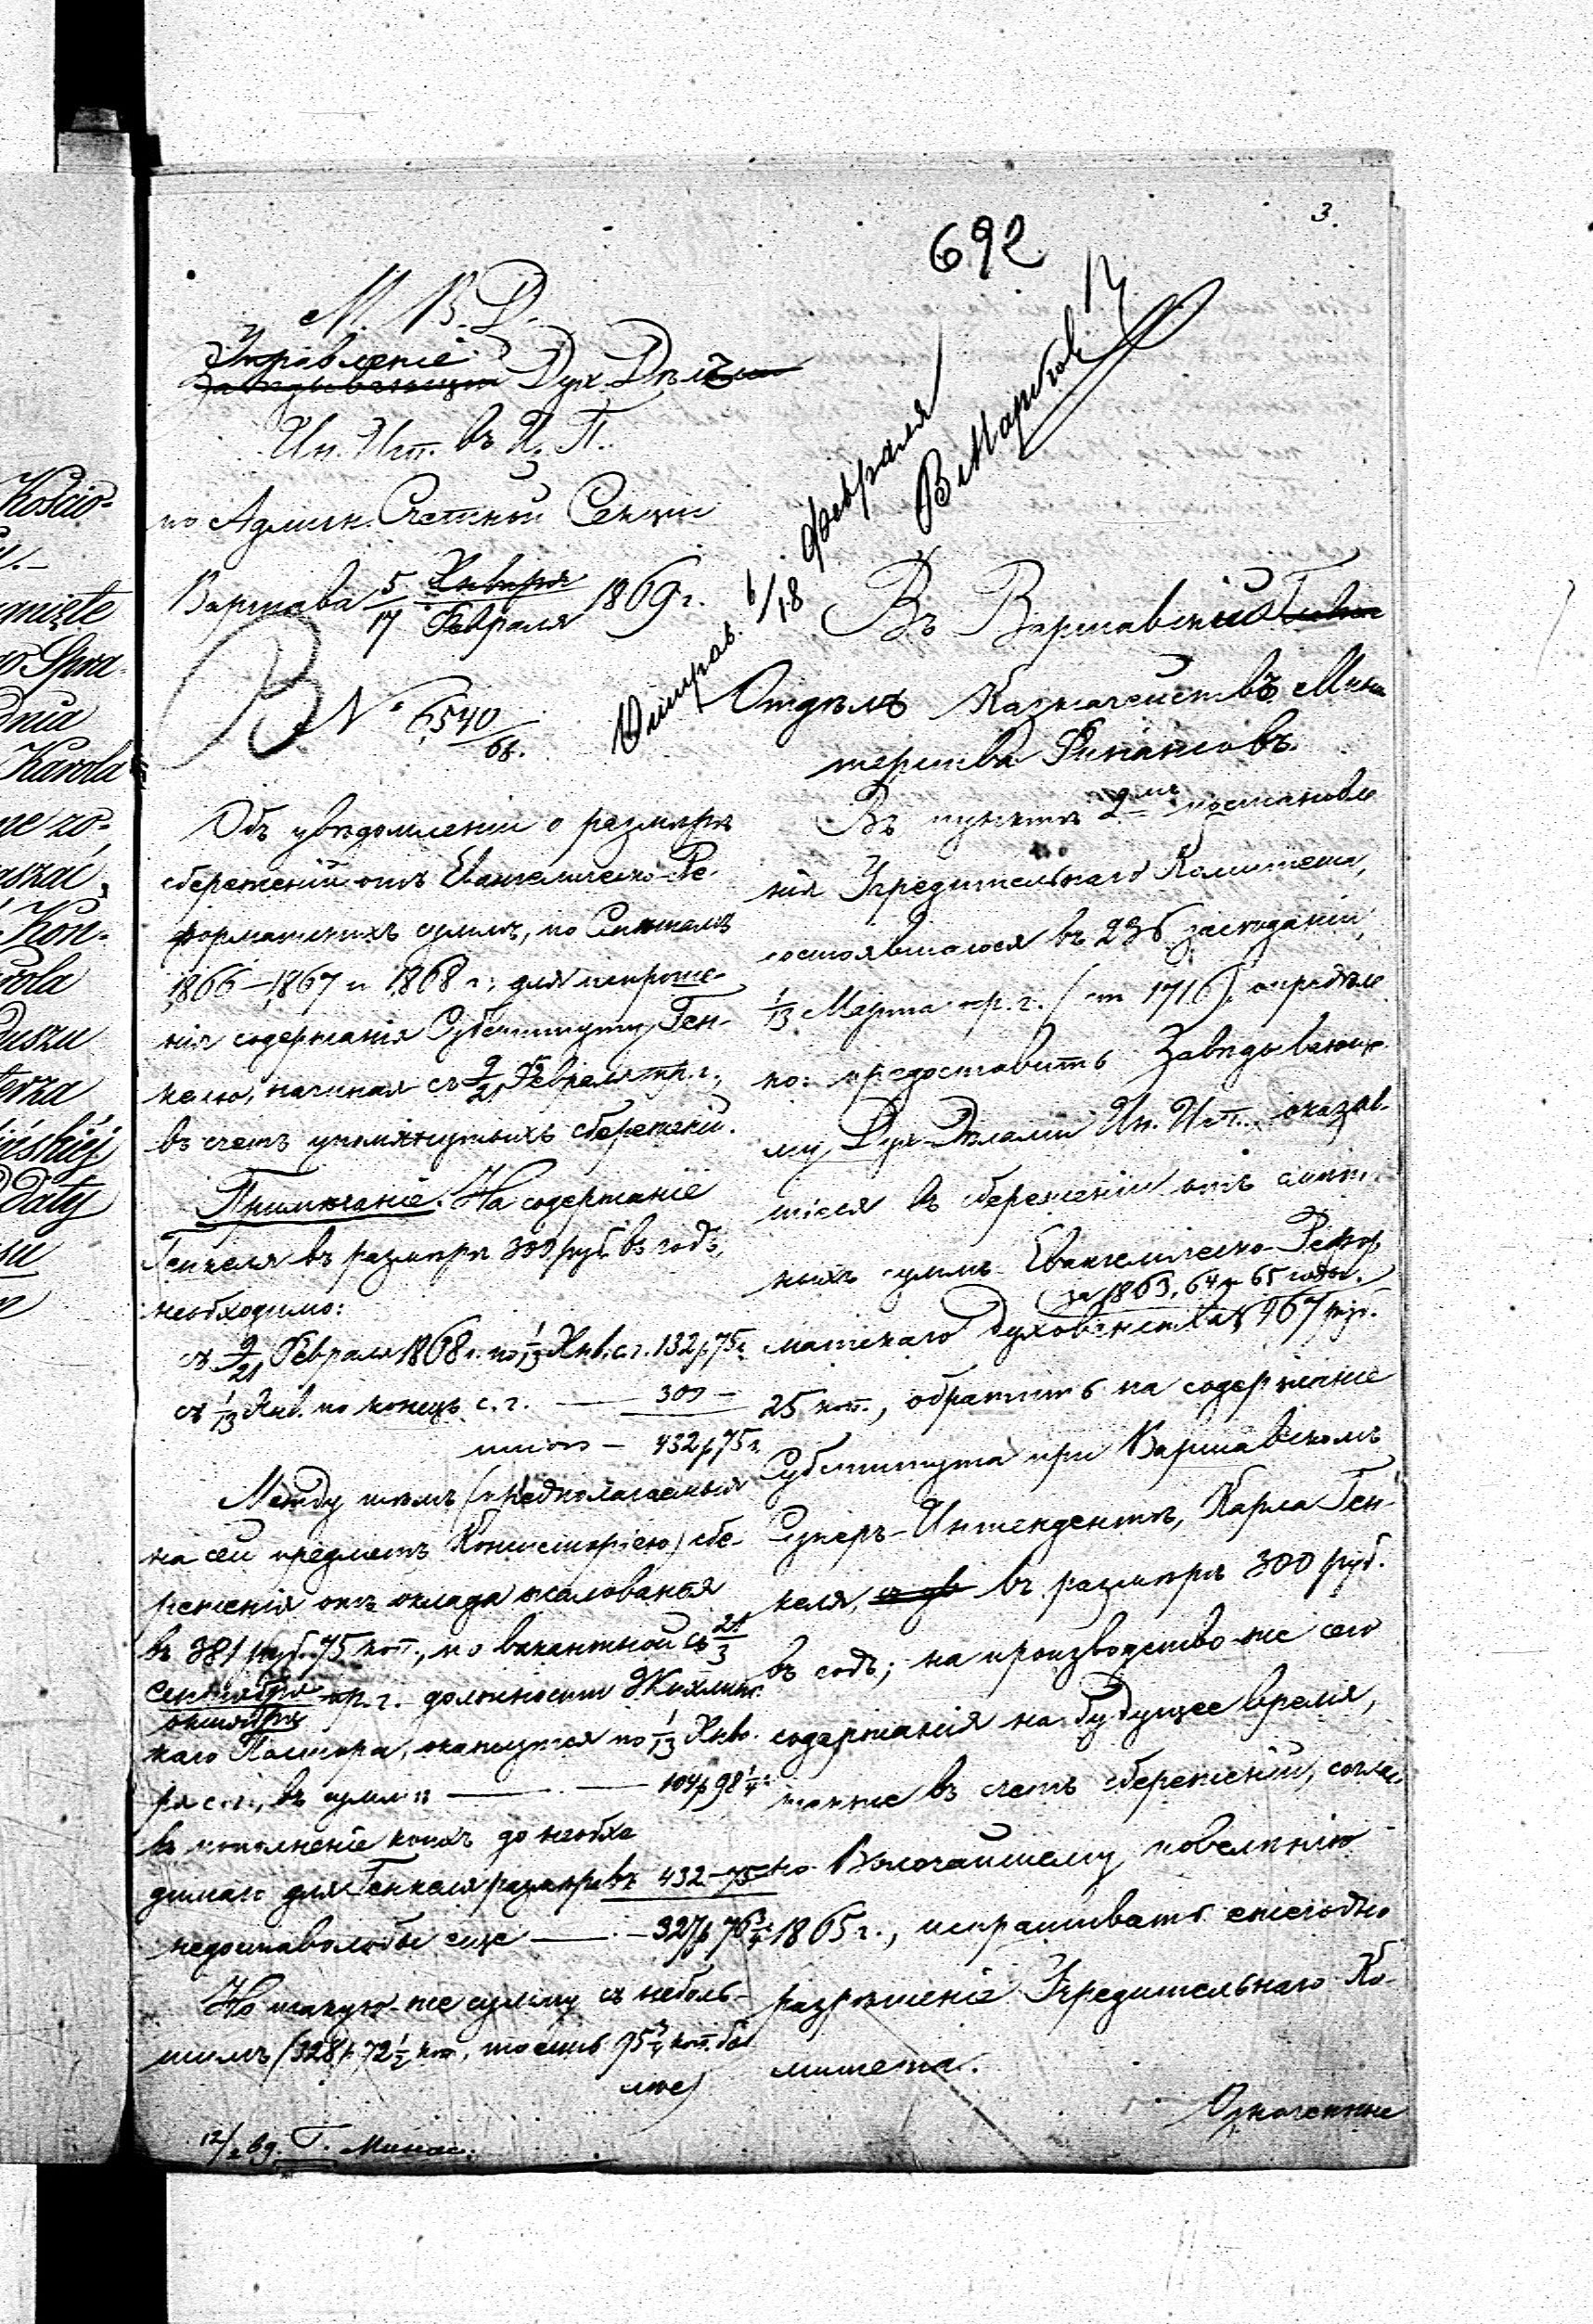 3.
692
М. В. Д.
Управленіе
Завѣдывающій Дух. Дѣлъ
Ин. Исп. въ Ц. П.
по Админ. Счетной Секціи
Варшава 5/17 Января Февраля 1869 г.
В № 6540/68.
Отправ. 6/18 Февраля
Объ увѣдомленіи о размѣрѣ
сбереженій отъ Евангелическо-Ре-
форматскихъ суммъ, по Смѣтамъ
1866–1867 и 1868 г. для испроше-
нія содержанія Субституту Ген-
келю, начиная съ 9/21 Февраля пр. г.,
въ счетъ упомянутыхъ сбереженій.
Примѣчаніе. На содержаніе
Генкеля въ размѣрѣ 300 руб. въ годъ,
необходимо:
съ 9/21 Февраля 1868 г. по 1/13 Янв. с. г. 132 р 75 к
съ 1/13 Янв. по конецъ с. г. — 300 —
итого — 432 р 75 к
Между тѣмъ (предполагаемыя
на сей предметъ Консисторіею) сбе-
реженія отъ оклада жалованья
въ 381 руб. 75 коп., по вакантной съ 21/3
Сентября/Октября пр. г. должности
каго Пастора, окажутся по 1/13 Янва-
ря с. г., въ суммѣ — 104 р 98 1/4 к
въ пополненіе коихъ до необхо
димаго для Генкеля размѣра въ 432–75
недоставало бы еще — 327 р 76 3/4 к
Но такую-же сумму съ неболь-
шимъ (328 р 72 1/2 коп., то есть 95 3/4 коп. бо
лѣе)
Въ Варшавскій
Отдѣлъ Казначействъ Мини
терства Финансовъ.
Въ пунктѣ 2мъ постановле
нія Учредительнаго Комитета,
состоявшагося въ 236 засѣданіи,
1/13 Марта пр. г. (ст 1716), опредѣле
но: предоставить Завѣдывающе
му Дух. Дѣлами Ин. Исп. оказав-
шіеся въ сбереженіи отъ смѣт
ныхъ суммъ Евангелическо-Рефор
за 1863, 64 и 65 годы.
матскаго Духовенства 467 руб.
25 коп., обратить на содержаніе
Субститута при Варшавскомъ
Суперъ-Интендентѣ, Карла Ген-
келя, въ размѣрѣ 300 руб.
въ годъ; на производство-же сего
содержанія на будущее время,
также въ счетъ сбереженій, соглас
но Высочайшему повелѣнію
1865 г., испрашивать ежегодно
разрѣшеніе Учредительнаго Ко-
митета.
Означенные